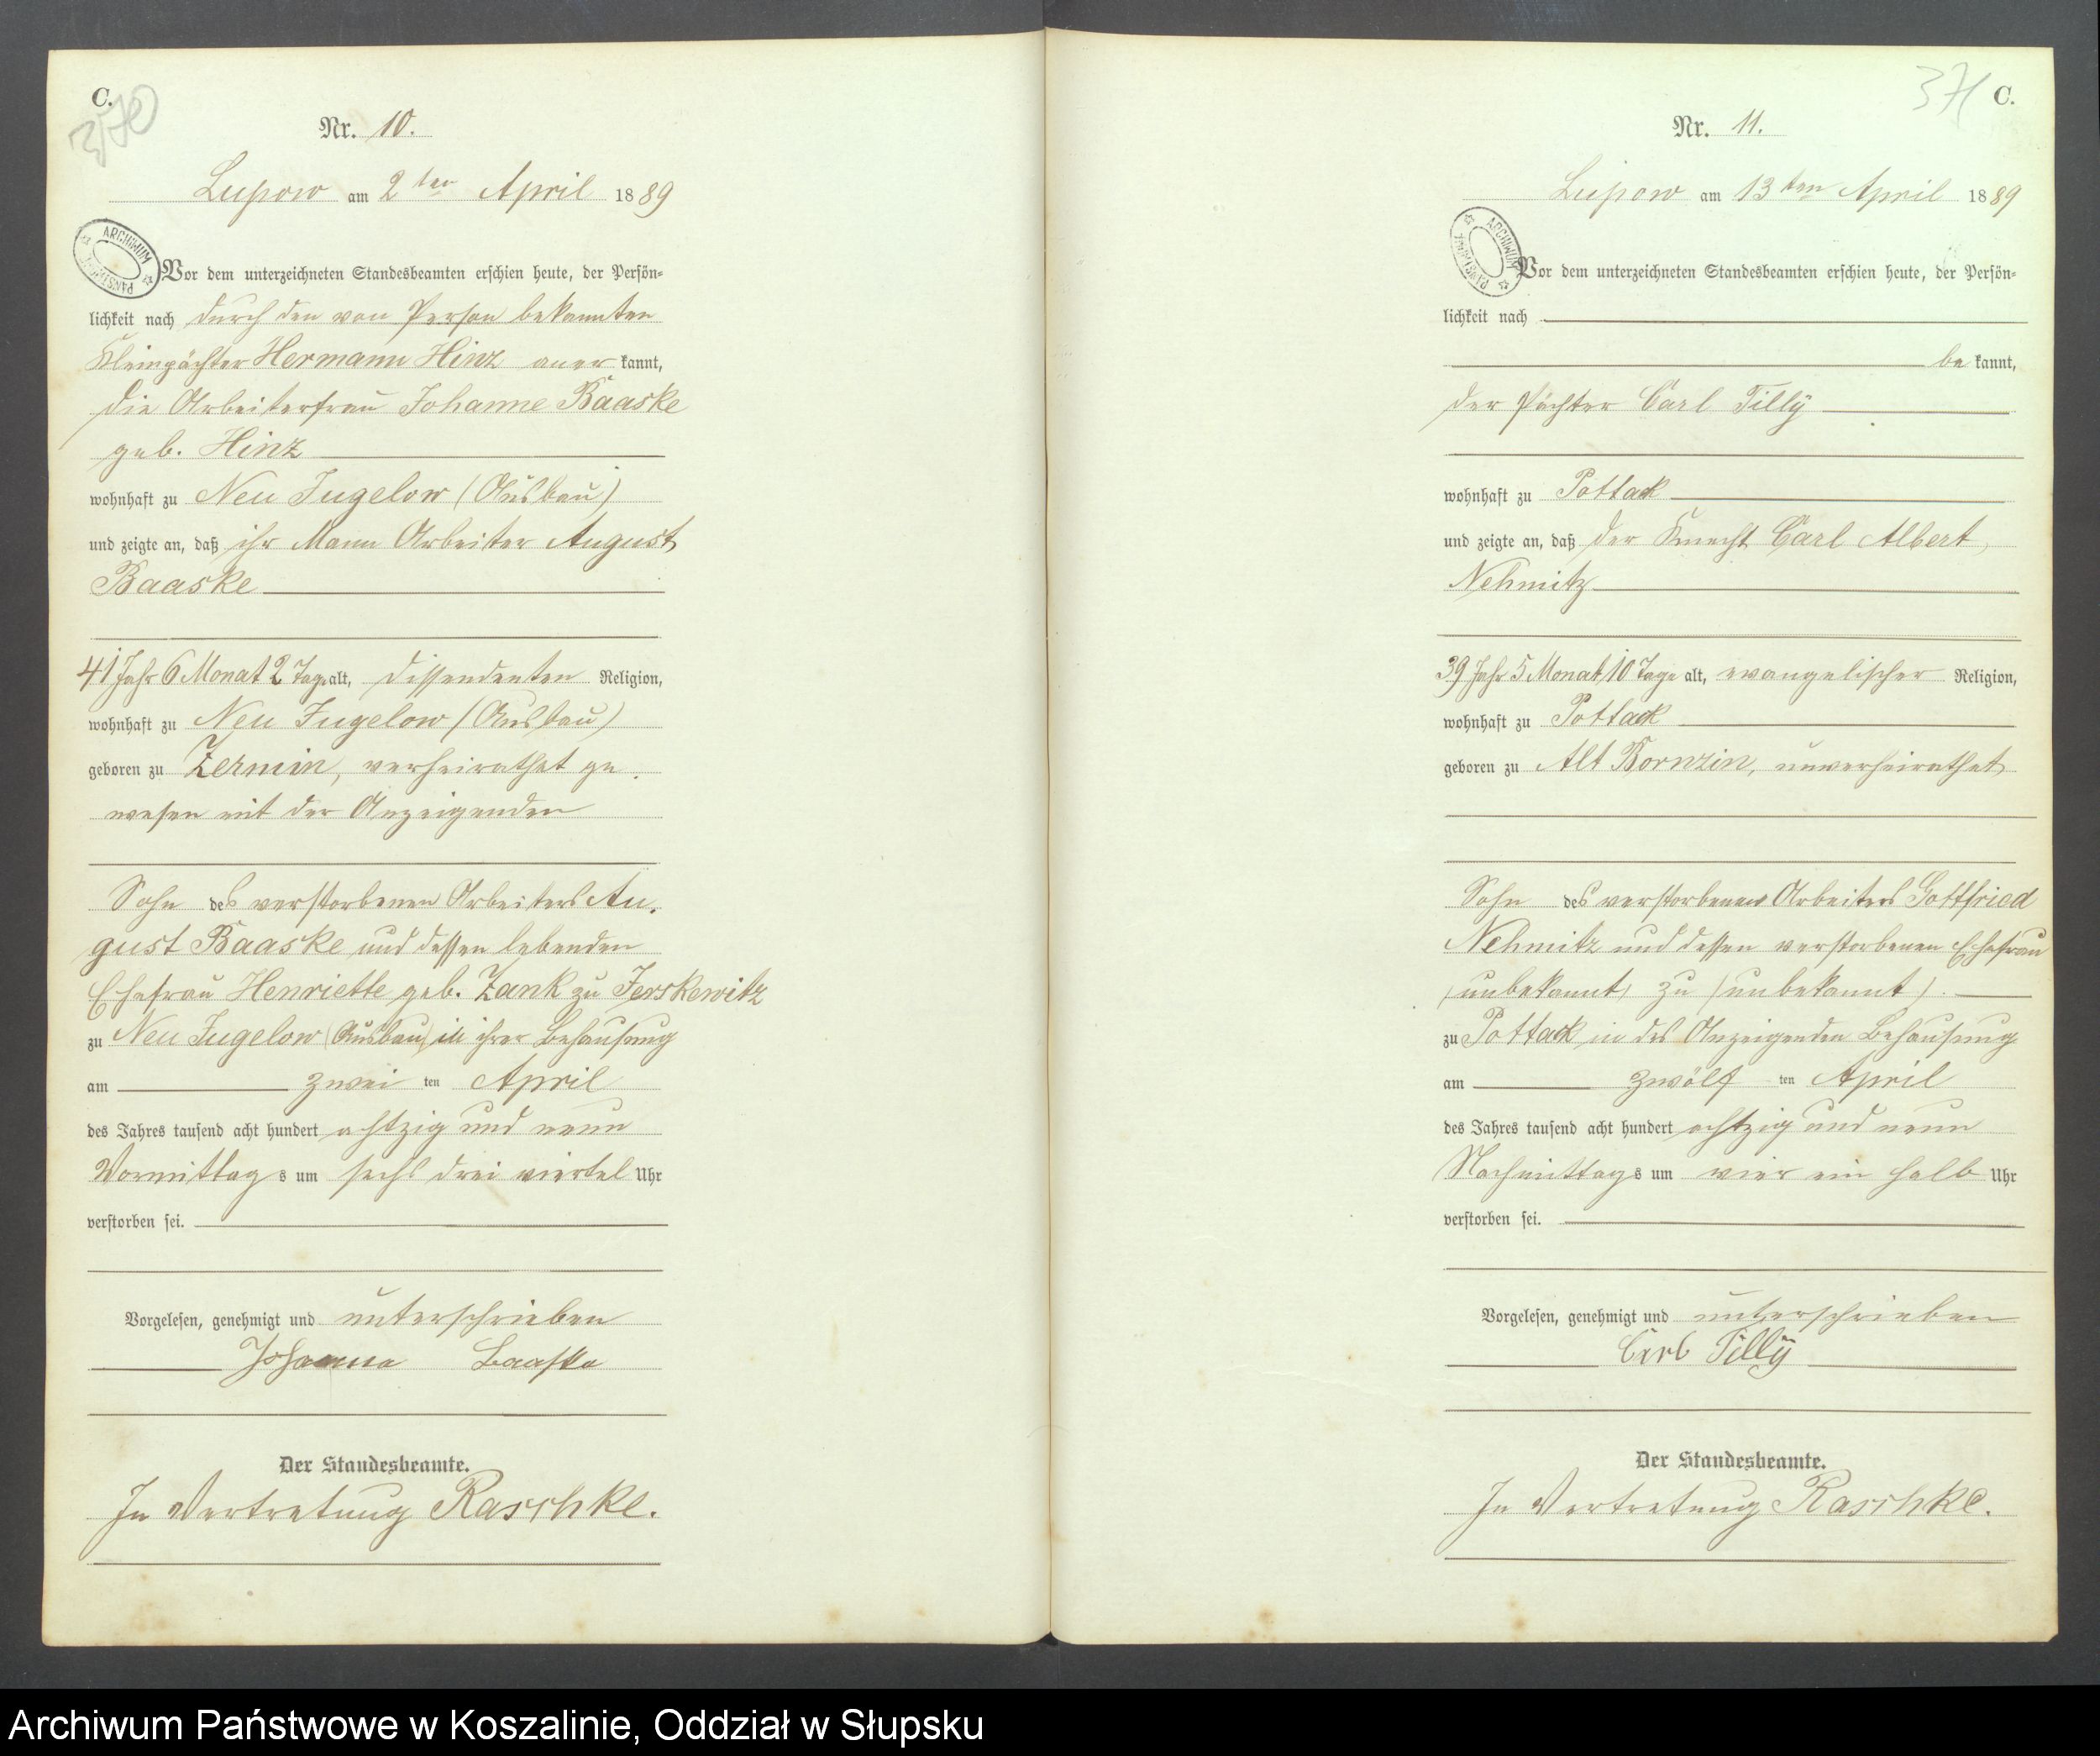 C.
370
Nr. 10.
Lupow am 2ten April 1889
ARCHIWUM PAŃSTWOWE
Vor dem unterzeichneten Standesbeamten erschien heute, der Persön-
lichkeit nach durch den von Person bekannten
Kleinpächter Hermann Hinz aner kannt,
die Arbeiterfrau Johanne Baaske
geb. Hinz
wohnhaft zu Neu Jugelow (Ausbau)
und zeigte an, daß ihr Mann Arbeiter August
Baaske
41 Jahr 6 Monat 2 Tage alt, dissendenten Religion,
wohnhaft zu Neu Jugelow (Ausbau)
geboren zu Zermin, verheirathet ge.
wesen mit der Anzeigenden
Sohn des verstorbenen Arbeiters Au.
gust Baaske und dessen lebenden
Ehefrau Henriette geb. Zank zu Jerskewitz
zu Neu Jugelow (Ausbau) in ihrer Behausung
am zwei ten April
des Jahres tausend acht hundert achtzig und neun
Vormittags um sechs drei viertel Uhr
verstorben sei.
Vorgelesen, genehmigt und unterschrieben
Johanna Baaske
Der Standesbeamte.
In Vertretung Raschke.
371 C.
Nr. 11.
Lupow am 13ten April 1889
ARCHIWUM PAŃSTWOWE
Vor dem unterzeichneten Standesbeamten erschien heute, der Persön-
lichkeit nach
be kannt,
der Pächter Carl Tilly
wohnhaft zu Pottack
und zeigte an, daß der Knecht Carl Albert
Nehmitz
39 Jahr 5 Monat 10 Tage alt, evangelischer Religion,
wohnhaft zu Pottack
geboren zu Alt Bornzin, unverheirathet
Sohn des verstorbenen Arbeiters Gottfried
Nehmitz und dessen verstorbenen Ehefrau
(unbekannt) zu (unbekannt).
zu Pottack in des Anzeigenden Behausung
am zwölf ten April
des Jahres tausend acht hundert achtzig und neun
Nachmittags um vier ein halb Uhr
verstorben sei.
Vorgelesen, genehmigt und unterschrieben
Carl Tilly
Der Standesbeamte.
In Vertretung Raschke.
Archiwum Państwowe w Koszalinie, Oddział w Słupsku